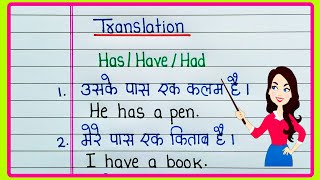 Translation
Has/Have/Had
1. उसके पास एक कलम है।
He has a pen.
2. मेरे पास एक किताब है।
I have a book.